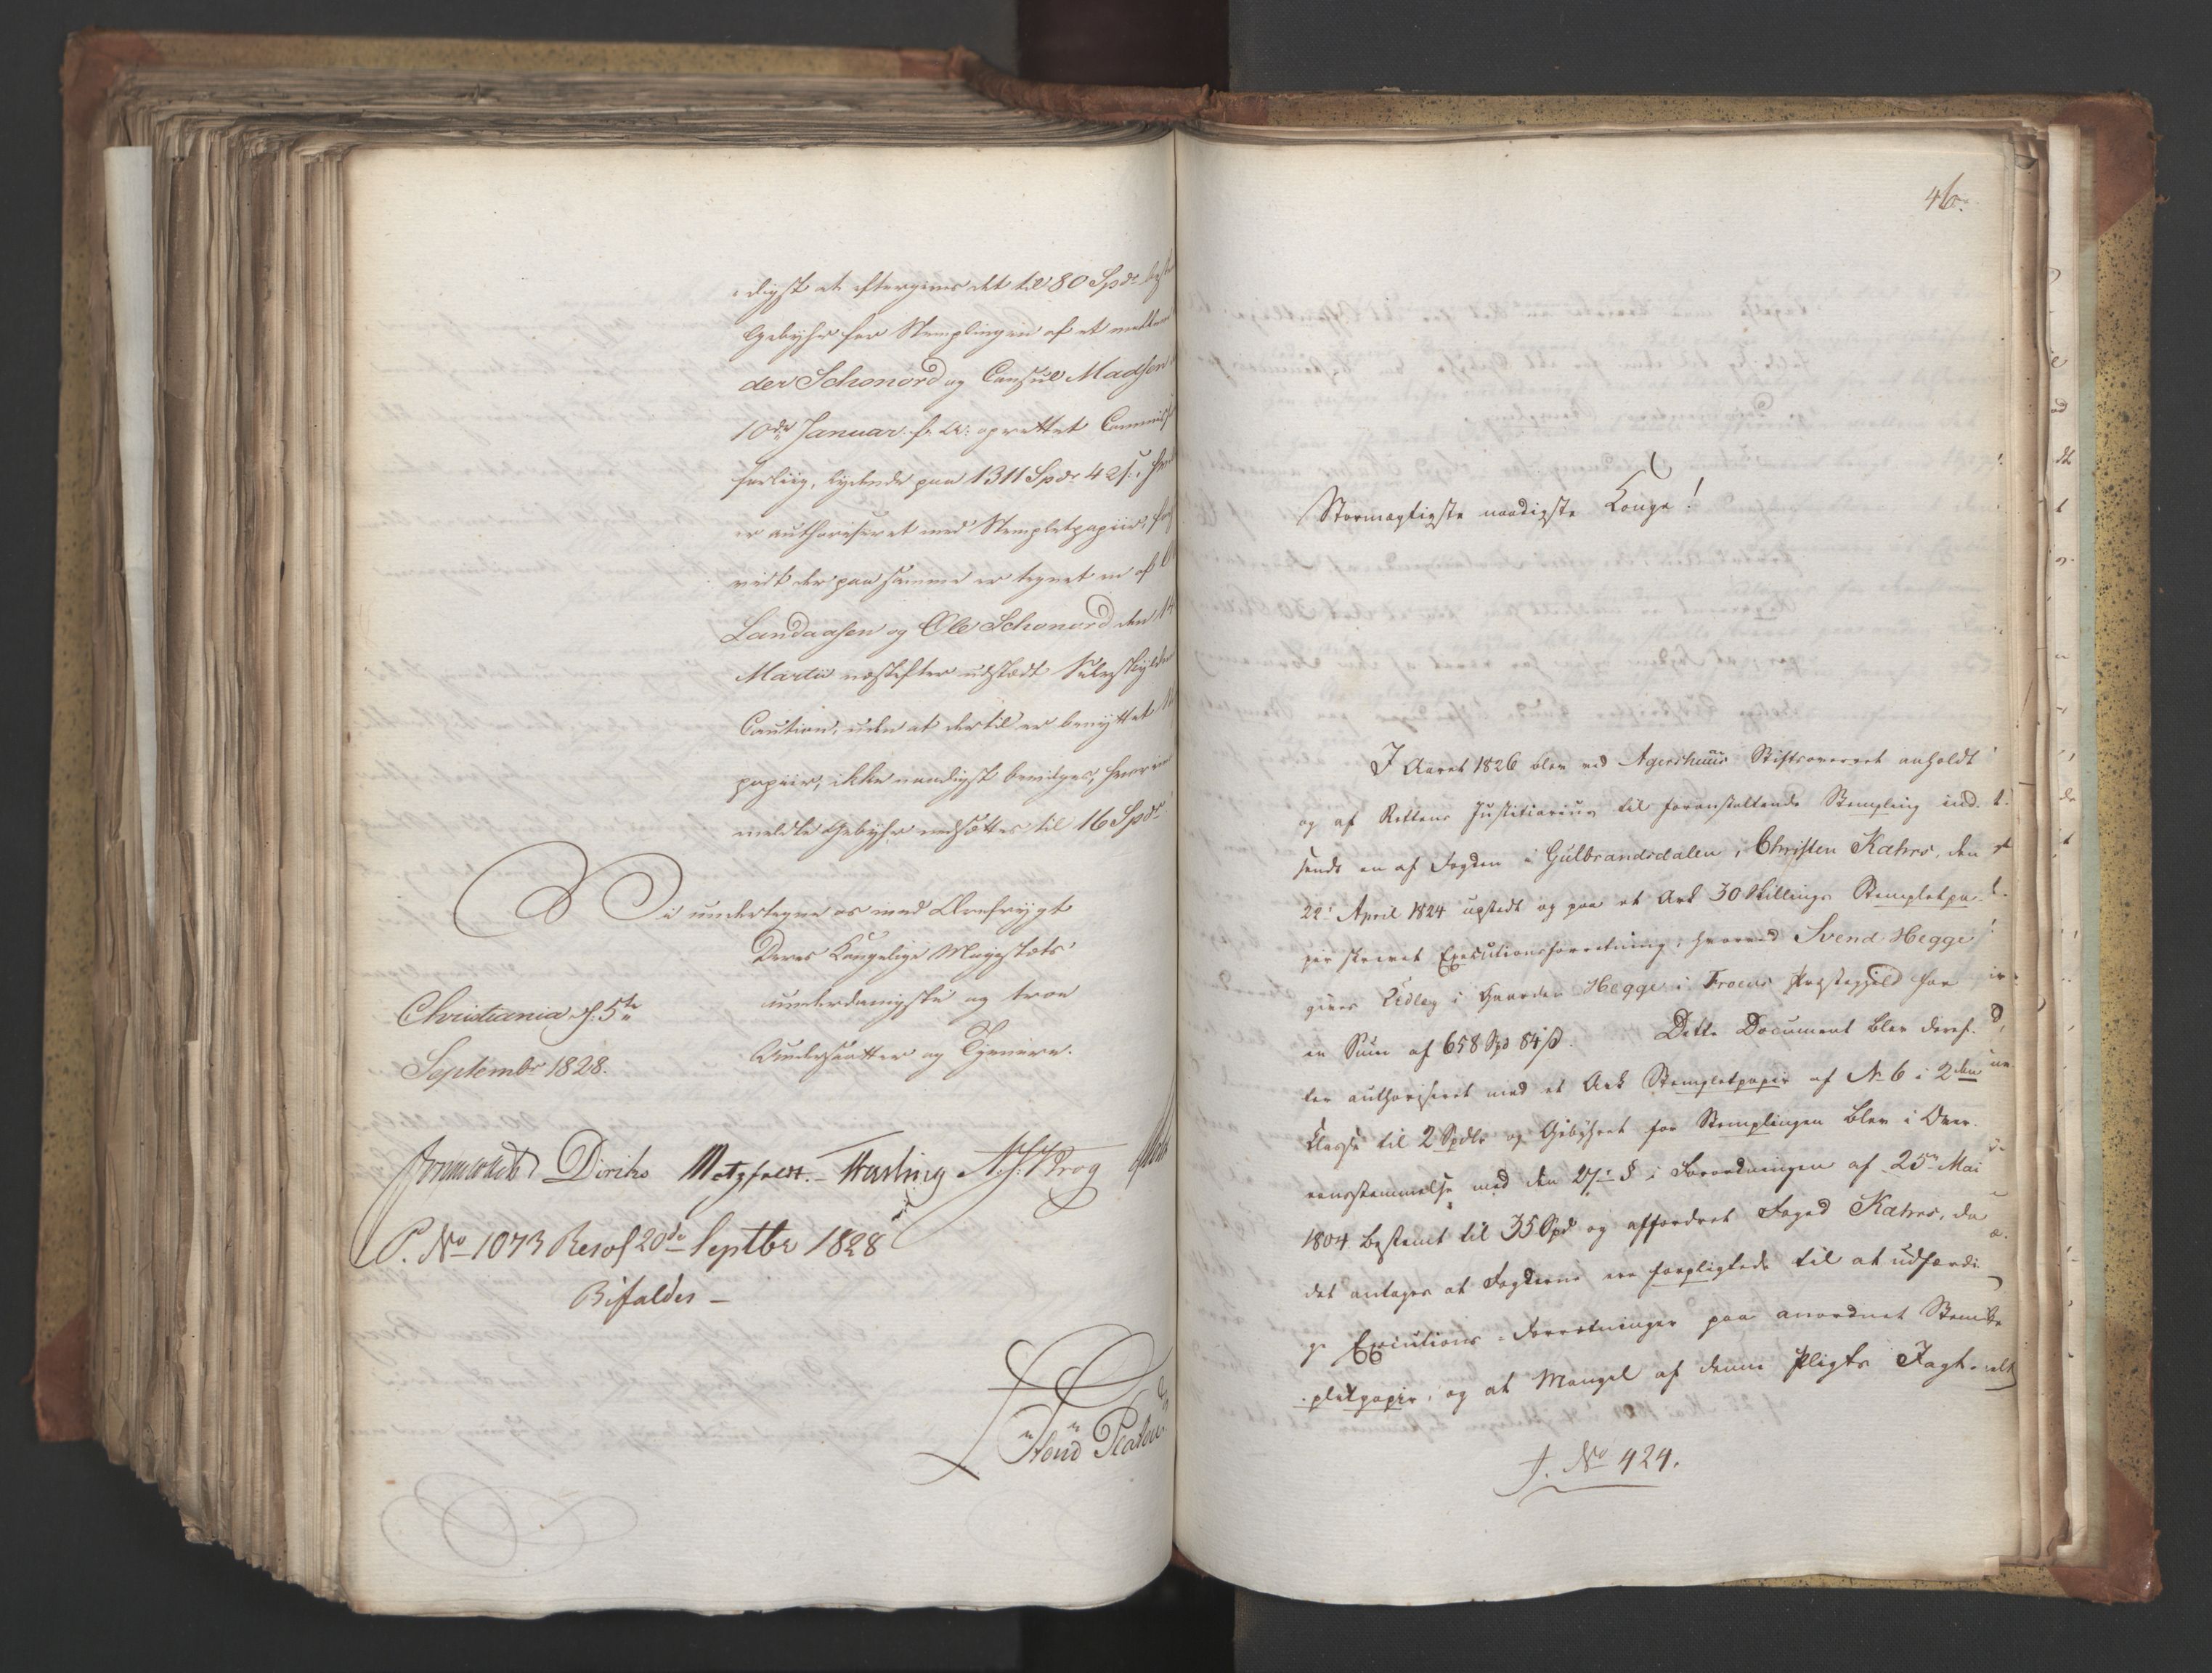 digst at eftergives det til 80 Spdr
Gebyhr for Stemplingen af et mellem
der Schonord og Consul Madsen
10de Januar f. A. oprettet Commiss
forliig, lydende paa 1311 Spdr 42 s.,
er authoriseret med Stempletpapiir,
vidt der paa samme er tegnet en af
Landaasen og Ole Schonord den 14
Martii næstefter udstædt Selvskylder
Caution, uden at dertil er benyttet
papiir, ikke naadigst bevilges,
meldte Gebyhr nedsættes til 16 Spdr
Vi undertegne os med Ærefrygt
Deres Kongelige Majestæts
underdanigste og troe
Undersaatter og Tjenere.
Christiania d. 5te
Septembr 1828.
Diriks Motzfeldt. Fasting N. J. Krog
P. No 1073 Resol 20de Septbr 1828
Bifaldes —
Platen
46.
Stormægtigste naadigste Konge!
I Aaret 1826 blev ved Agershuus Stiftsoverret anholdt
og af Rettens Justitiarius til foranstaltende Stempling ind-
sendt en af Fogden i Gulbrandsdalen, Christen Kahrs, den
22de April 1824 udstedt og paa et Ark 30 Skillings Stempletpa-
pir skrevet Executionsforretning, hvorved Svend Hegge
gives Udlæg i Gaarden Hegge i Froens Præstegjeld for
en Sum af 658 Spd 84 s. Dette Document blev deref-
ter authoriseret med et Ark Stempletpapir af No 6 i 2den
Klasse til 2 Spdlr og Gebyhret for Stemplingen blev i Over-
eensstemmelse med den 27de § i Forordningen af 25de Mai
1804 bestemt til 35 Spd og affordret Foged Kahrs, da
det antages at Fogderne ere forpligtede til at udfærdi-
ge Executions-Forretninger paa anordnet Stem-
pletpapir, og at Mangel af denne Pligts Iagt-
J. No 424.